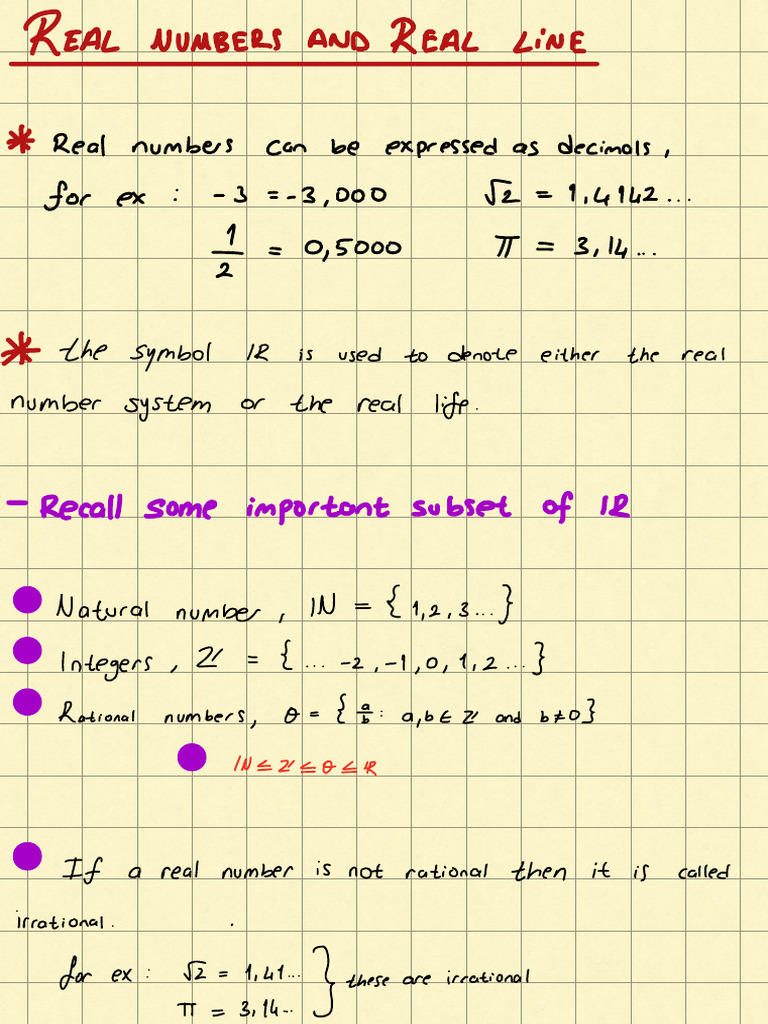 REAL NUMBERS AND REAL LINE
* Real numbers can be expressed as decimals,
for ex : -3 = -3,000 √2 = 1,4142...
1/2 = 0,5000 π = 3,14...
* the symbol ℝ is used to denote either the real
number system or the real life.
- Recall some important subset of ℝ
Natural number, ℕ = {1,2,3...}
Integers, ℤ = {... -2,-1,0,1,2...}
Rational numbers, θ = {a/b : a,b ∈ ℤ and b≠0}
ℕ ≤ ℤ ≤ θ ≤ ℝ
If a real number is not rational then it is called
irrational.
for ex : √2 = 1,41... } these are irrational
π = 3,14...